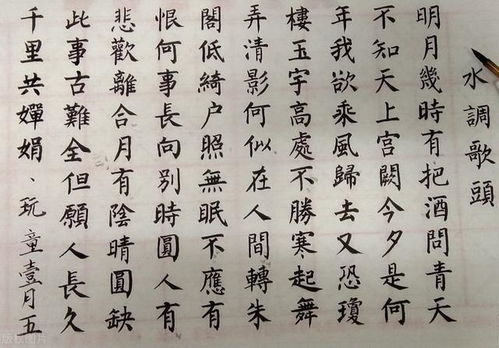 水調歌頭
明月幾時有把酒問青天
不知天上宮闕今夕是何
年我欲乘風歸去又恐瓊
樓玉宇高處不勝寒起舞
弄清影何似在人間轉朱
閣低綺户照無眠不應有
恨何事長向别時圓人有
悲歡離合月有陰晴圓缺
此事古難全但願人長久
千里共嬋娟、玩童壹月五
版权图片